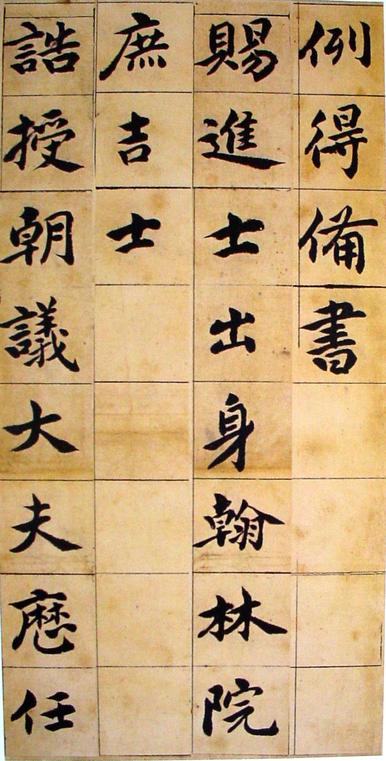 例得備書
賜進士出身翰林院
庶吉士
誥授朝議大夫歷任